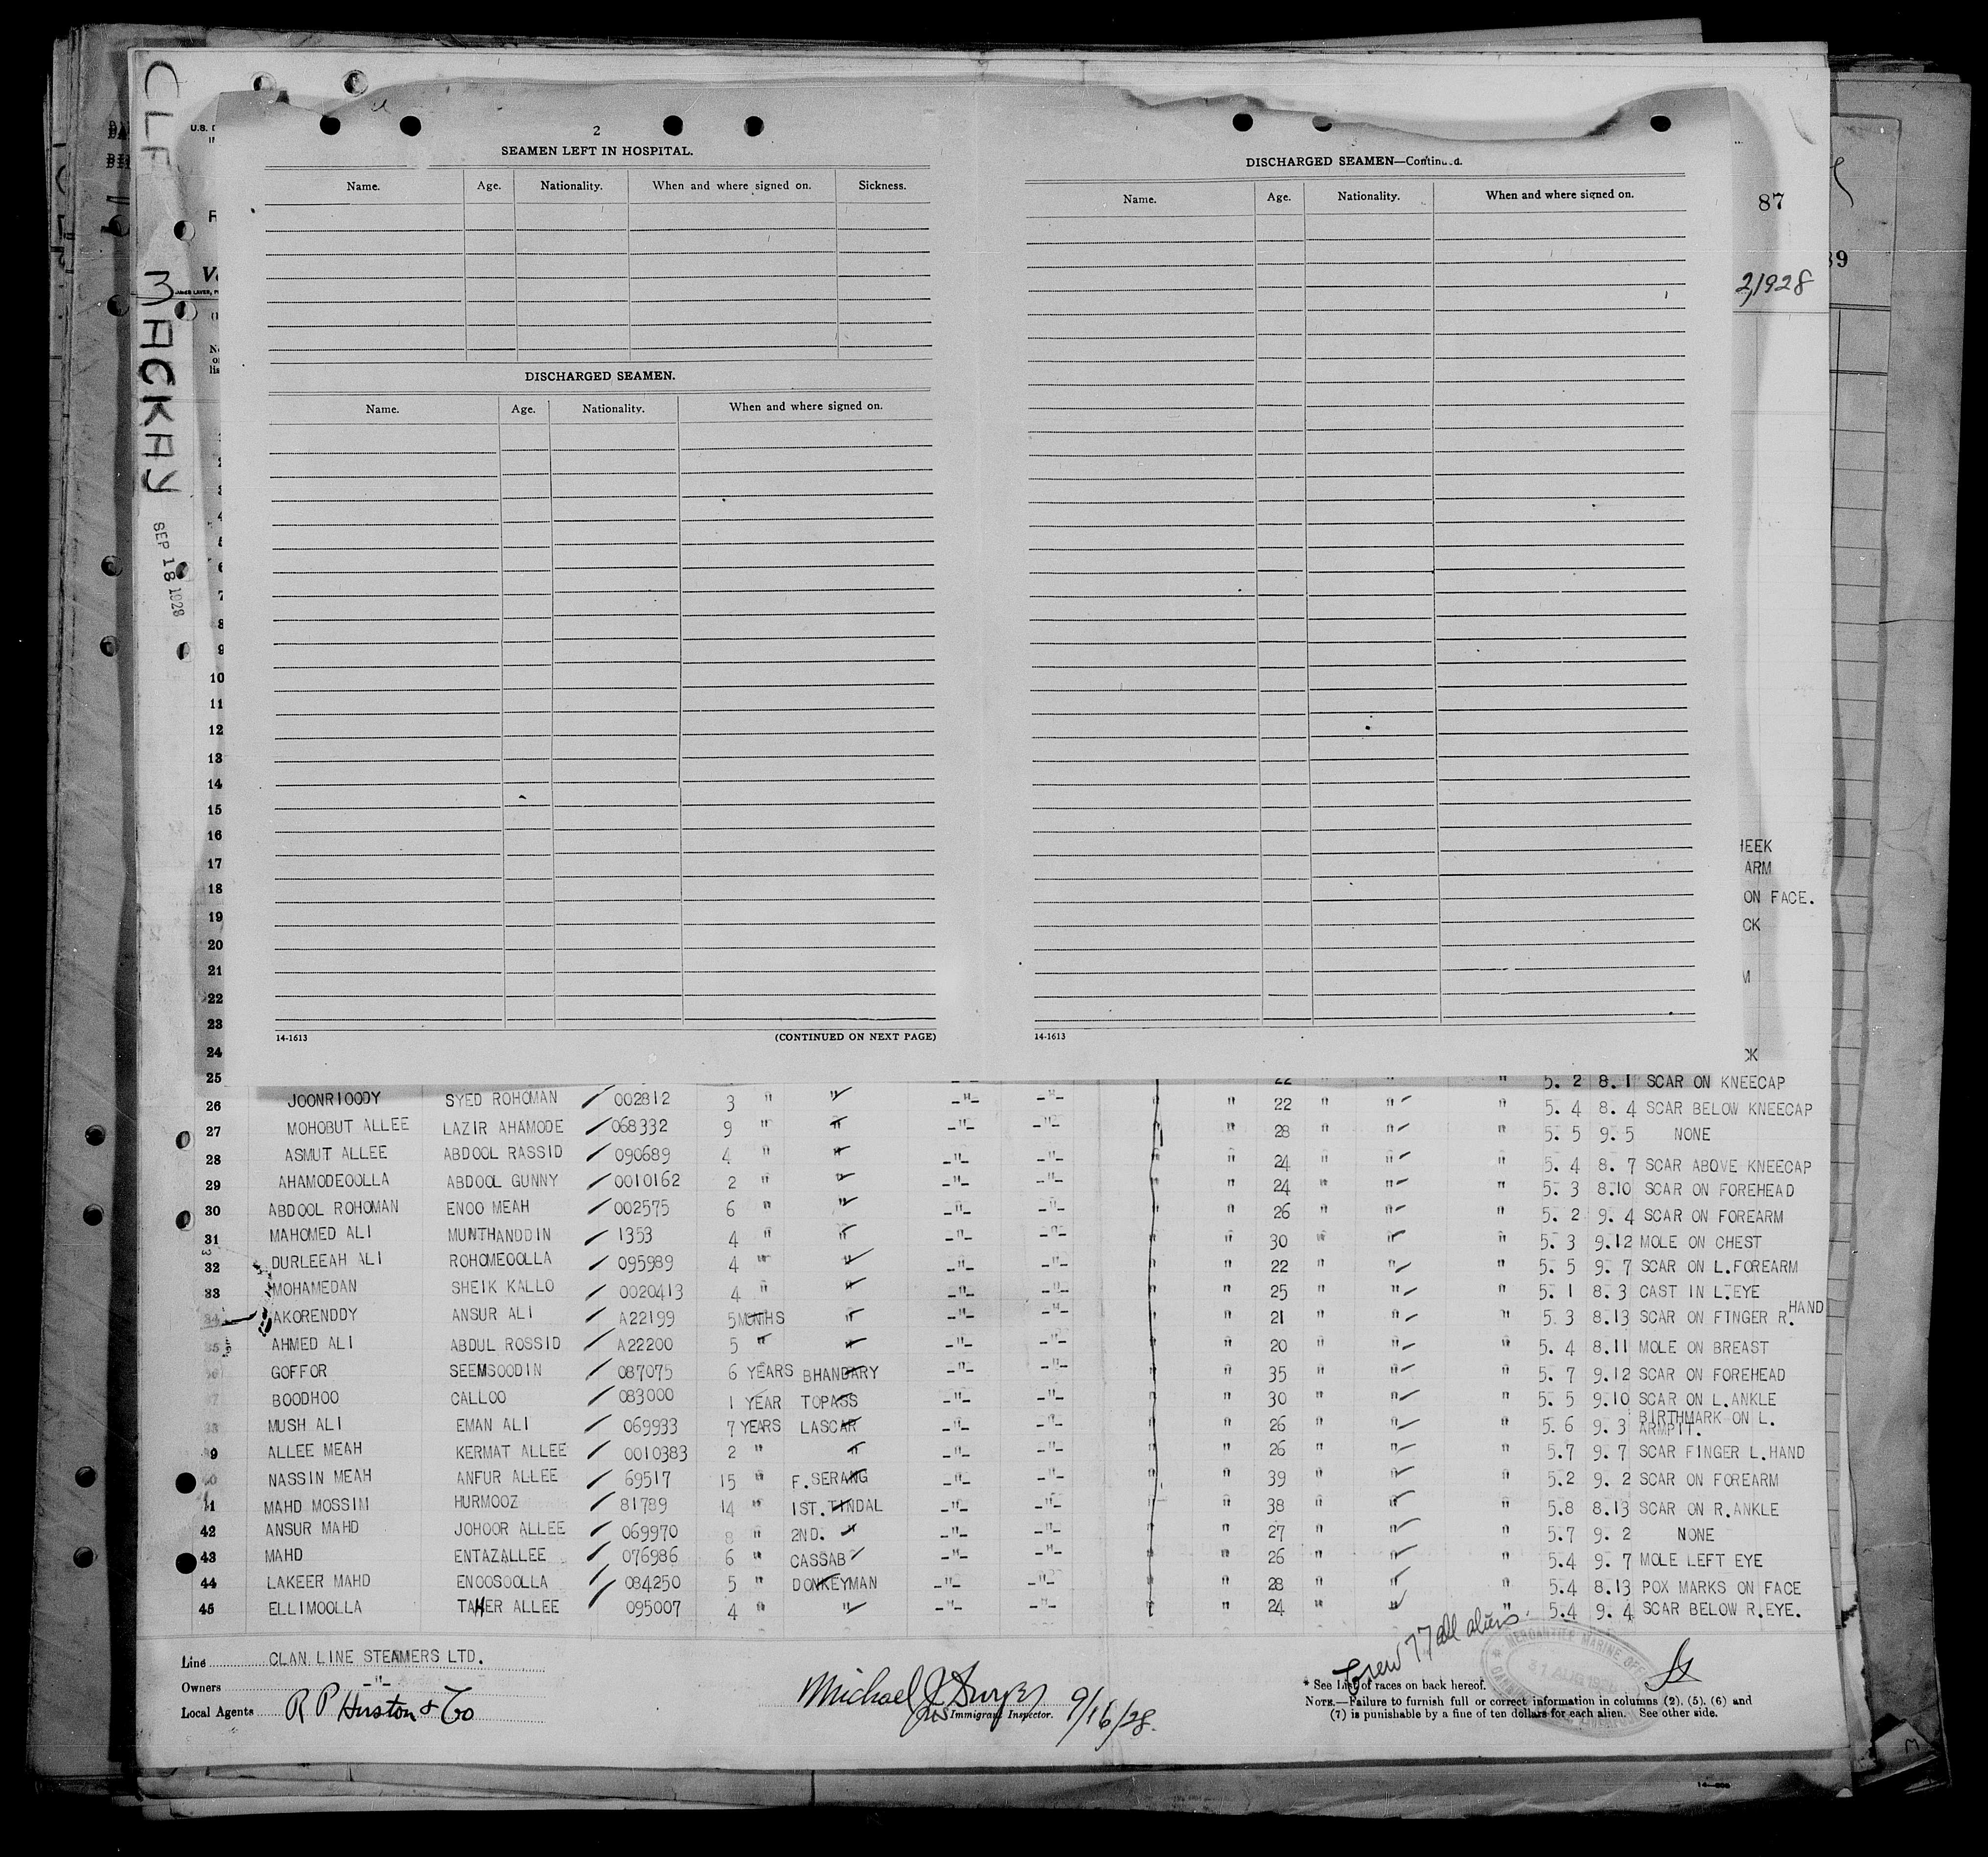 CLF MACKAY SEP 18 1928
2
SEAMEN LEFT IN HOSPITAL.
Name. Age. Nationality. When and where signed on. Sickness.
DISCHARGED SEAMEN.
Name. Age. Nationality. When and where signed on.
14-1613 (CONTINUED ON NEXT PAGE)
DISCHARGED SEAMEN—Continued.
Name. Age. Nationality. When and where signed on.
14-1613
87
2,1928
39
3
4
5
6
7
8
9
10
11
12
13
14
15
16
HEEK
17
ARM
18
ON FACE.
19
CK
20
21
M
22
23
24
CK
25 22 " " " 5. 2 8. 1 SCAR ON KNEECAP
26 JOONRIOODY SYED ROHOMAN 002812 3 " " -"- -"- " " 22 " " " 5. 4 8. 4 SCAR BELOW KNEECAP
27 MOHOBUT ALLEE LAZIR AHAMODE 068332 9 " " -"- -"- " 28 " " " 5. 5 9. 5 NONE
28 ASMUT ALLEE ABDOOL RASSID 090689 4 " " -"- -"- " " 24 " " " 5. 4 8. 7 SCAR ABOVE KNEECAP
29 AHAMODEOOLLA ABDOOL GUNNY 0010162 2 " " -"- -"- " " 24 " " " 5. 3 8.10 SCAR ON FOREHEAD
30 ABDOOL ROHOMAN ENOO MEAH 002575 6 " " -"- -"- " " 26 " " " 5. 2 9. 4 SCAR ON FOREARM
31 MAHOMED ALI MUNTHANDDIN 1353 4 " " -"- -"- " " 30 " " " 5. 3 9.12 MOLE ON CHEST
32 DURLEEAH ALI ROHOMEOOLLA 095989 4 " " -"- -"- " " 22 " " " 5. 5 9. 7 SCAR ON L.FOREARM
33 MOHAMEDAN SHEIK KALLO 0020413 4 " " -"- -"- " " 25 " " " 5. 1 8. 3 CAST IN L.EYE
34 AKORENDDY ANSUR ALI A22199 5 MONTHS " -"- -"- " " 21 " " " 5. 3 8.13 SCAR ON FINGER R. HAND
35 AHMED ALI ABDUL ROSSID A22200 5 " " -"- -"- " " 20 " " " 5. 4 8.11 MOLE ON BREAST
36 GOFFOR SEEMSOODIN 087075 6 YEARS BHANDARY -"- -"- " " 35 " " " 5. 7 9.12 SCAR ON FOREHEAD
37 BOODHOO CALLOO 083000 1 YEAR TOPASS -"- -"- " " 30 " " " 5. 5 9.10 SCAR ON L.ANKLE
38 MUSH ALI EMAN ALI 069933 7 YEARS LASCAR -"- -"- " " 26 " " " 5. 6 9. 3 BIRTHMARK ON L. ARMPIT.
9 ALLEE MEAH KERMAT ALLEE 0010383 2 " " -"- -"- " " 26 " " " 5.7 9. 7 SCAR FINGER L.HAND
40 NASSIN MEAH ANFUR ALLEE 69517 15 " F.SERANG -"- -"- " " 39 " " " 5.2 9. 2 SCAR ON FOREARM
41 MAHD MOSSIM HURMOOZ 81789 14 " 1ST.TINDAL -"- -"- " " 38 " " " 5.8 8.13 SCAR ON R.ANKLE
42 ANSUR MAHD JOHOOR ALLEE 069970 8 " 2ND. " -"- -"- " " 27 " " " 5.7 9. 2 NONE
43 MAHD ENTAZALLEE 076986 6 " CASSAB -"- -"- " " 26 " " " 5.4 9. 7 MOLE LEFT EYE
44 LAKEER MAHD ENOOSOOLLA 084250 5 " DONKEYMAN -"- -"- " " 28 " " " 5.4 8.13 POX MARKS ON FACE
45 ELLIMOOLLA TAHER ALLEE 095007 4 " " -"- -"- " " 24 " " " 5.4 9. 4 SCAR BELOW R.EYE.
Crew 77 all aliens.
MERCANTILE MARINE OFFICE
31 AUG 192
Line CLAN LINE STEAMERS LTD.
Owners -"-
Local Agents R P Huston & Co
Michael J Dwyer 9/16/28.
Immigrant Inspector.
* See List of races on back hereof.
NOTE.—Failure to furnish full or correct information in columns (2), (5), (6) and
(7) is punishable by a fine of ten dollars for each alien. See other side.